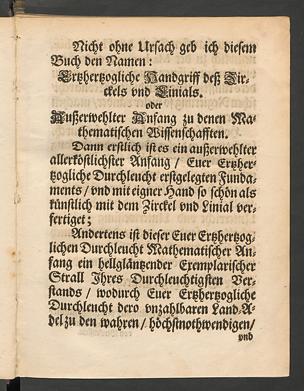 Nicht ohne Ursach geb ich diesem
Buch den Namen:
Ertzhertzogliche Handgriff deß Zir-
ckels vnd Linials.
oder
Außerwehlter Anfang zu denen Ma-
thematischen Wissenschafften.
Dann erstlich ist es ein außerwehlter
allerköstlichster Anfang / Euer Ertzher-
tzogliche Durchleucht erstgelegten Funda-
ments / vnd mit eigner Hand so schön als
künstlich mit dem Zirckel vnd Linial ver-
fertiget;
Andertens ist dieser Euer Ertzhertzog-
lichen Durchleucht Mathematischer An-
fang ein hellgläntzender Exemplarischer
Strall Ihres Durchleuchtigsten Ver-
stands / wodurch Euer Ertzhertzogliche
Durchleucht dero vnzahlbaren Land-A-
del zu den wahren / höchstnothwendigen /
vnd